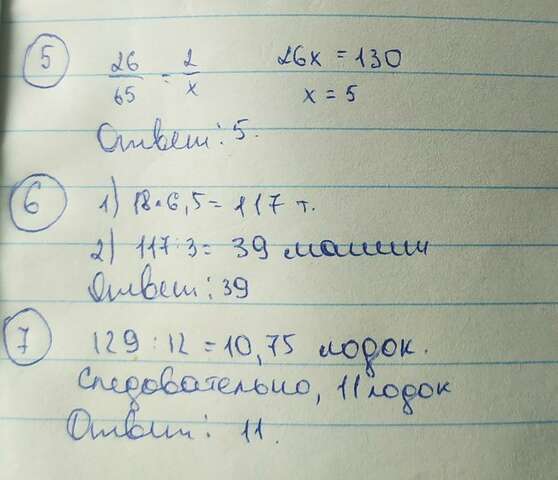 5 26/65 = 2/x 26x = 130
x = 5
Ответ: 5.
6 1) 18·6,5 = 117 т.
2) 117:3 = 39 машин
Ответ: 39
7 129 : 12 = 10,75 лодок.
Следовательно, 11 лодок
Ответ: 11.